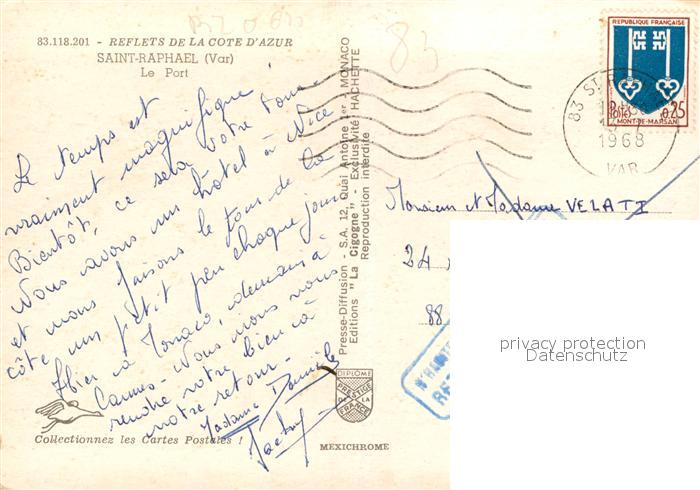 83.118.201 - REFLETS DE LA COTE D'AZUR
SAINT-RAPHAEL (Var)
Le Port
83
Le temps est
vraiment magnifique !
Bientôt, ce sera votre tour
Nous avons un hôtel à Nice
et nous faisons le tour de la
côte un petit peu chaque jour
Hier à Monaco, demain à
Cannes. Nous nous vous
rendre votre bien à
notre retour.
Madame Danièle
Collectionnez les Cartes Postales !
Presse-Diffusion - S.A. 12, Quai Antoine 1er - MONACO
Editions "La Cigogne" - Exclusivité HACHETTE
Reproduction interdite
DIPLOME
PRESTIGE
DE LA
FRANCE
MEXICHROME
REPUBLIQUE FRANÇAISE
Postes
0,25
MONT-DE-MARSAN
83 ST
1968
VAR
Monsieur et Madame VELATI
24
88
N'HABITE
RE
privacy protection
Datenschutz